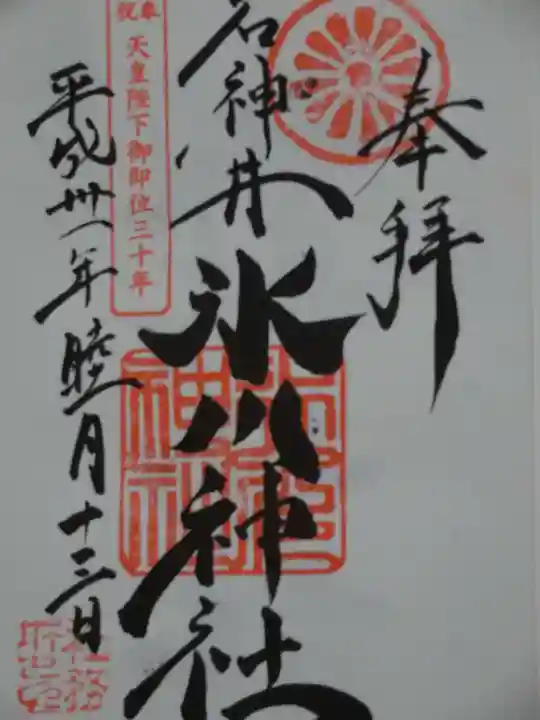 奉拝
石神井氷川神社
奉祝 天皇陛下御即位三十年
平成卅一年睦月十三日